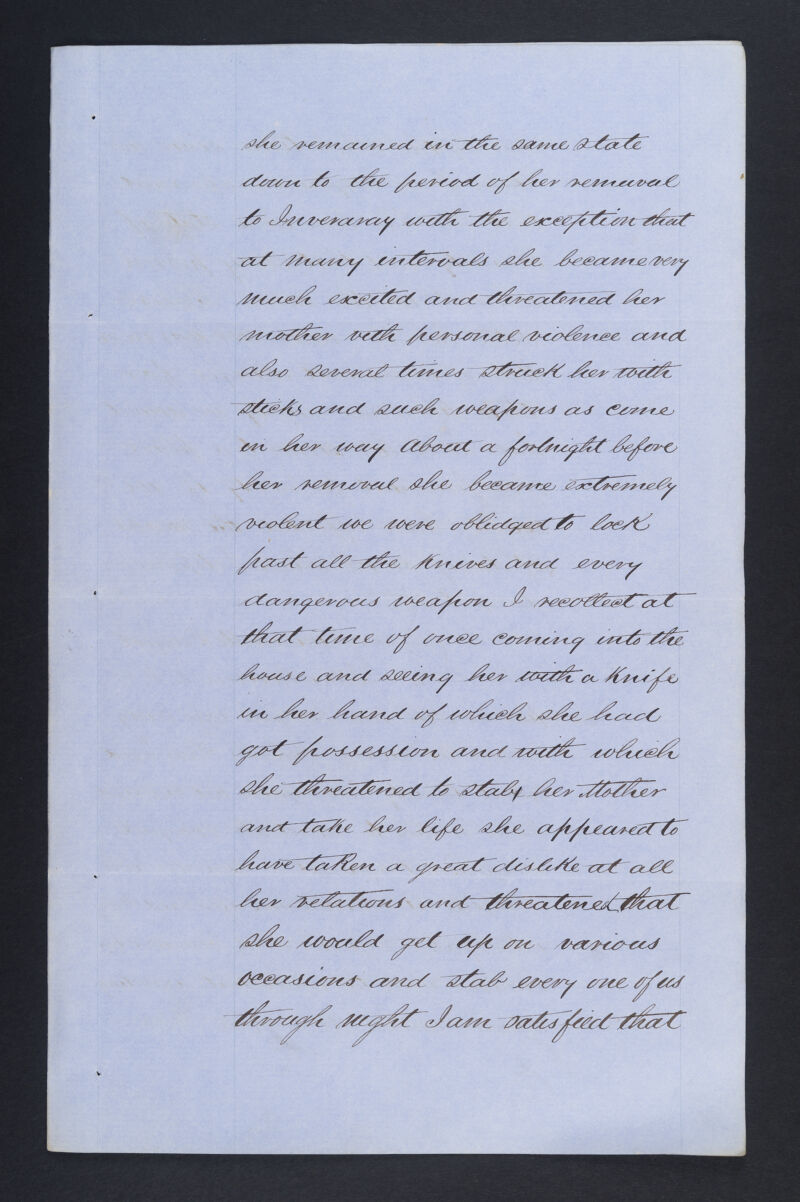 she remained in the same state
down to the period of her removal
to Inveraray with the exception that
at many intervals she became very
much excited and threatened her
mother with personal violence and
also several times struck her with
sticks and such weapons as come
in her way About a fortnight before
her removal she became extremely
violent we were oblidged to lock
past all the knives and every
dangerous weapon I recollect at
that time of once coming into the
house and seeing her with a knife
in her hand of which she had
got possession and with which
she threatened to stab her Mother
and take her life she appeared to
have taken a great dislike at all
her relations and threatened that
she would get up on various
occasions and stab every one of us
through night I am satisfied that